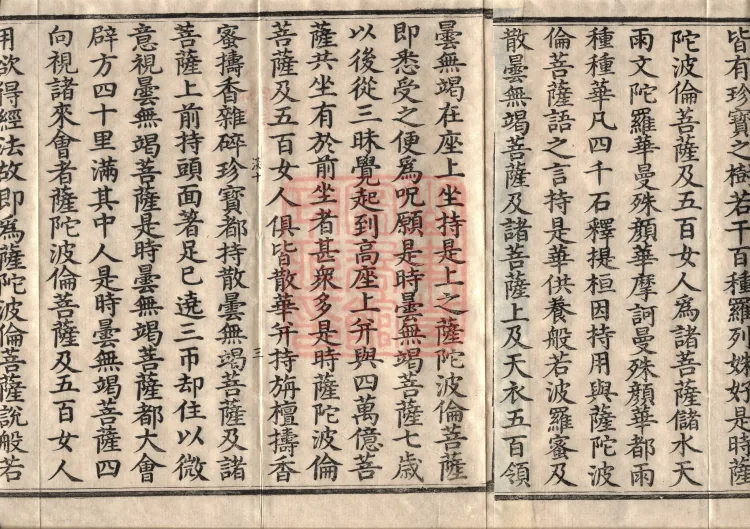 皆有珍寶之樹若干百種羅列姝好是時薩
陀波倫菩薩及五百女人爲諸菩薩儲水天
雨文陀羅華曼殊顔華摩訶曼殊顔華都雨
種種華凡四千石釋提桓因持用與薩陀波
倫菩薩語之言持是華供養般若波羅蜜及
散曇無竭菩薩及諸菩薩上及天衣五百領
曇無竭在座上坐持是上之薩陀波倫菩薩
即悉受之便爲呪願是時曇無竭菩薩七歲
以後從三昧覺起到高座上幷與四萬億菩
薩共坐有於前坐者甚衆多是時薩陀波倫
菩薩及五百女人俱皆散華幷持旃檀擣香
三
蜜擣香雜碎珍寶都持散曇無竭菩薩及諸
菩薩上前持頭面著足已遶三帀却住以微
意視曇無竭菩薩是時曇無竭菩薩都大會
辟方四十里滿其中人是時曇無竭菩薩四
向視諸來會者薩陀波倫菩薩及五百女人
用欲得經法故即爲薩陀波倫菩薩說般若